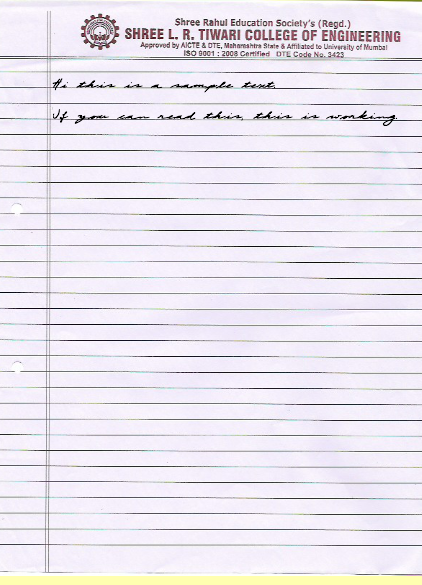 Shree Rahul Education Society's (Regd.)
SHREE L. R. TIWARI COLLEGE OF ENGINEERING
Approved by AICTE & DTE, Maharashtra State & Affiliated to University of Mumbai
ISO 9001 : 2008 Certified DTE Code No. 3423
Hi this is a sample text.
If you can read this, this is working